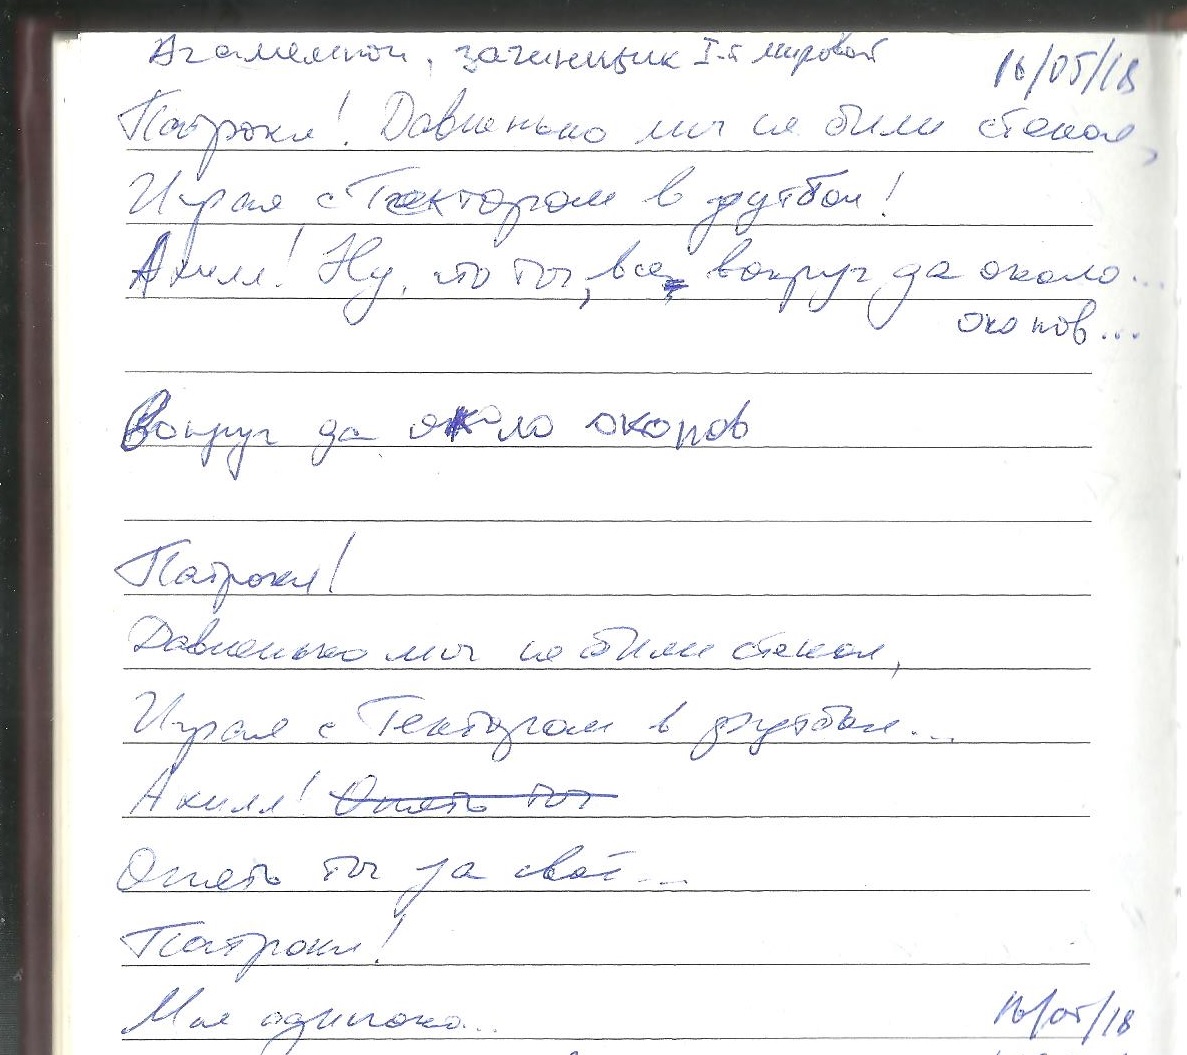 Агамемнон, зачинщик I-й мировой 16/05/18
Патрокл! Давненько мы не били стекол,
Играя с Гектором в футбол!
Ахилл! Ну, что ты, все вокруг да около...
окопов...
Вокруг да около окопов
Патрокл!
Давненько мы не били стекол,
Играя с Гектором в футбол...
Ахилл! Опять ты
Опять ты за своё...
Патрокл!
Мне одиноко... 16/05/18